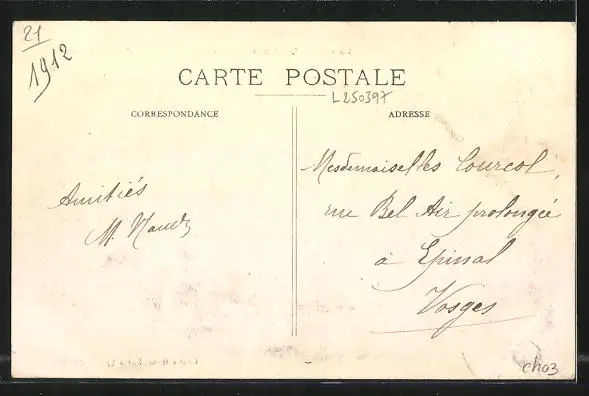 21
1912
CARTE POSTALE
L250397
CORRESPONDANCE
ADRESSE
Mesdemoiselles Courcol,
rue Bel Air prolongée
à Epinal
Vosges
Amitiés
M. Naudy
cho3